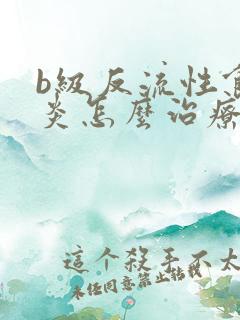 b級反流性
炎怎麼治療
這个殺手不太
未任同意禁止轉載